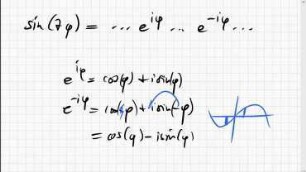 sin(7φ) = ... e^{iφ} ... e^{-iφ} ...
e^{iφ} = cos(φ) + i sin(φ)
e^{-iφ} = cos(φ) + i sin(-φ)
= cos(φ) - i sin(φ)